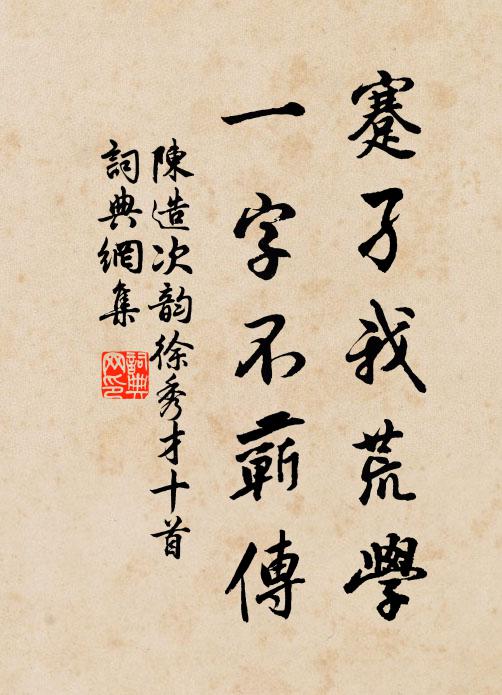 蹇孑我荒學
一字不蘄傳
陳造次韵徐秀才十首
詞典網集
詞典
网印